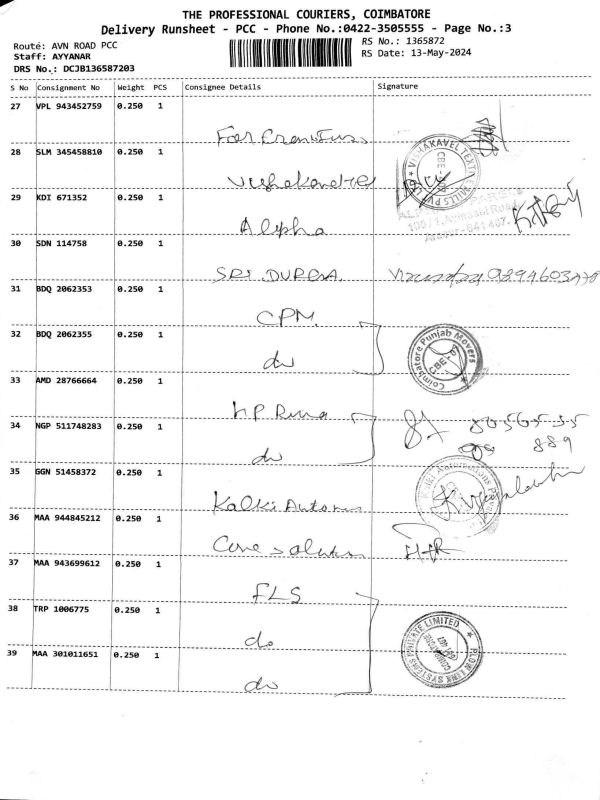 THE PROFESSIONAL COURIERS, COIMBATORE
Delivery Runsheet - PCC - Phone No.:0422-3505555 - Page No.:3
Route: AVN ROAD PCC
Staff: AYYANAR
DRS No.: DCJB136587203
RS No.: 1365872
RS Date: 13-May-2024
S No Consignment No Weight PCS Consignee Details Signature
27 VPL 943452759 0.250 1
28 SLM 345458810 0.250 1
VISHAKAVEL TEXTILE MILLS PVT
29 KDI 671352 0.250 1 Alpha
30 SDN 114758 0.250 1 SRI DURGA
31 BDQ 2062353 0.250 1 CPM
32 BDQ 2062355 0.250 1 do
Coimbatore Punjab Movers
CBE
33 AMD 28766664 0.250 1
34 NGP 511748283 0.250 1 do
35 GGN 51458372 0.250 1 Kalki Automs
36 MAA 944845212 0.250 1
37 MAA 943699612 0.250 1 FLS
38 TRP 1006775 0.250 1 do
39 MAA 301011651 0.250 1 do
FLOW LINK SYSTEMS PRIVATE LIMITED
COIMBATORE